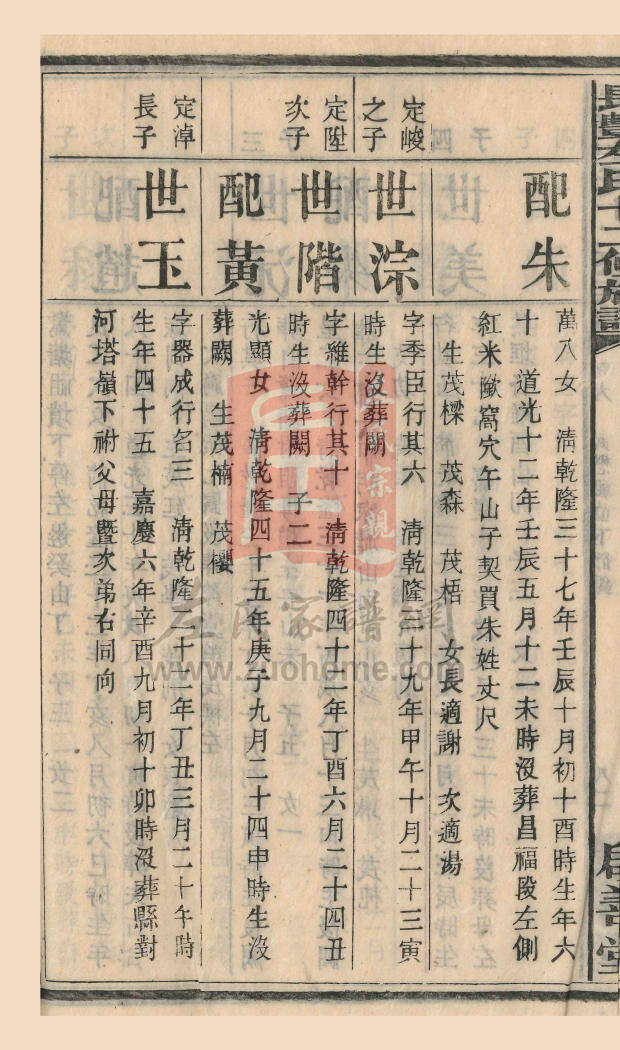 長豐左氏十二修族譜
啟善堂
配朱
萬八女 清乾隆三十七年壬辰十月初十酉時生年六
十 道光十二年壬辰五月十二未時沒葬昌福段左側
紅米𡑞窩穴午山子契買朱姓丈尺
生茂樑 茂森 茂梧 女長適謝 次適湯
定峻
之子
世淙
字季臣行其六 清乾隆三十九年甲午十月二十三寅
時生沒葬闕
定陞
次子
世階
字維幹行其十 清乾隆四十二年丁酉六月二十四丑
時生沒葬闕 子二
配黃
光顯女 清乾隆四十五年庚子九月二十四申時生沒
葬闕 生茂楠 茂櫻
定淖
長子
世玉
字器成行名三 清乾隆二十二年丁丑三月二十午時
生年四十五 嘉慶六年辛酉九月初十卯時沒葬縣對
河塔嶺下祔父母暨次弟右同向
左氏家譜網
www.zuohome.com